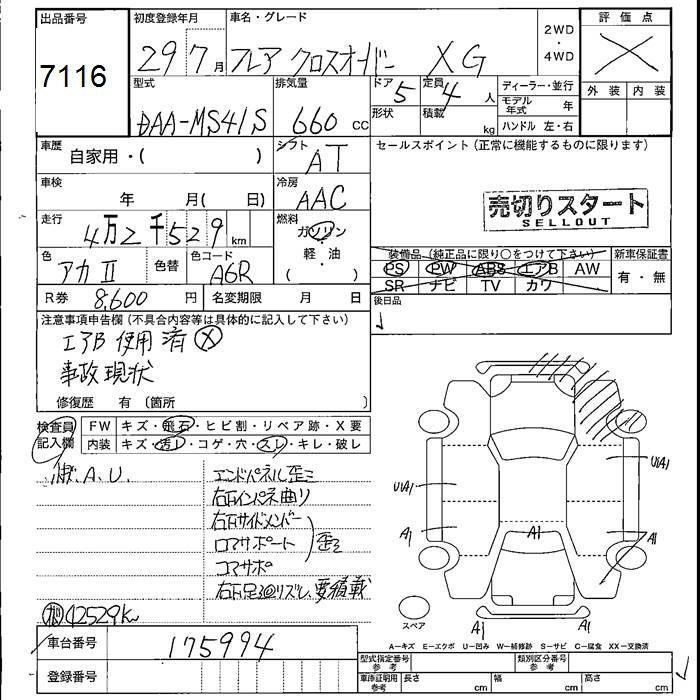 出品番号
7116
初度登録年月
29 7月
車名・グレード
フレア クロスオーバー XG
2WD
・
4WD
評価点
外装 内装
型式
DAA-MS41S
排気量
660 cc
ドア 5
形状
定員 4 人
積載 kg
ディーラー・並行
モデル年式 年
ハンドル 左・右
車歴 自家用・( )
シフト AT
車検 年 月( 日)
冷房 AAC
走行 4万2千529 km
燃料 ガソリン・軽・油・( )
色 アカⅡ
色替
色コード A6R
R券 8,600 円
名変期限 月 日
セールスポイント(正常に機能するものに限ります)
売切りスタート
SELLOUT
装備品(純正品に限り○をつけて下さい)
PS PW ABS エアB AW
SR ナビ TV カワ
新車保証書
有・無
後日品
注意事項申告欄(不具合内容等は具体的に記入して下さい)
エアB 使用済 X
事故現状
修復歴 有 〔箇所 〕
検査員記入欄
FW キズ・飛石・ヒビ割・リペア跡・X要
内装 キズ・汚レ・コゲ・穴・スレ・キレ・破レ
A.U.
エンドパネル歪ミ
右Fインパネ曲り
右Fサイドメンバー
ロアサポート 歪ミ
コアサポ
右F足ズレ、要積載
42529km
車台番号 175994
登録番号
U1A1
A1
A1
U1A1
A1
A1
A1
スペア
A…キズ E…エクボ U…凹み W…補修跡 S…サビ C…腐食 XX…交換済
型式指定番号 参考
類別区分番号 参考
車庫証明用 参考
長さ cm
幅 cm
高さ cm